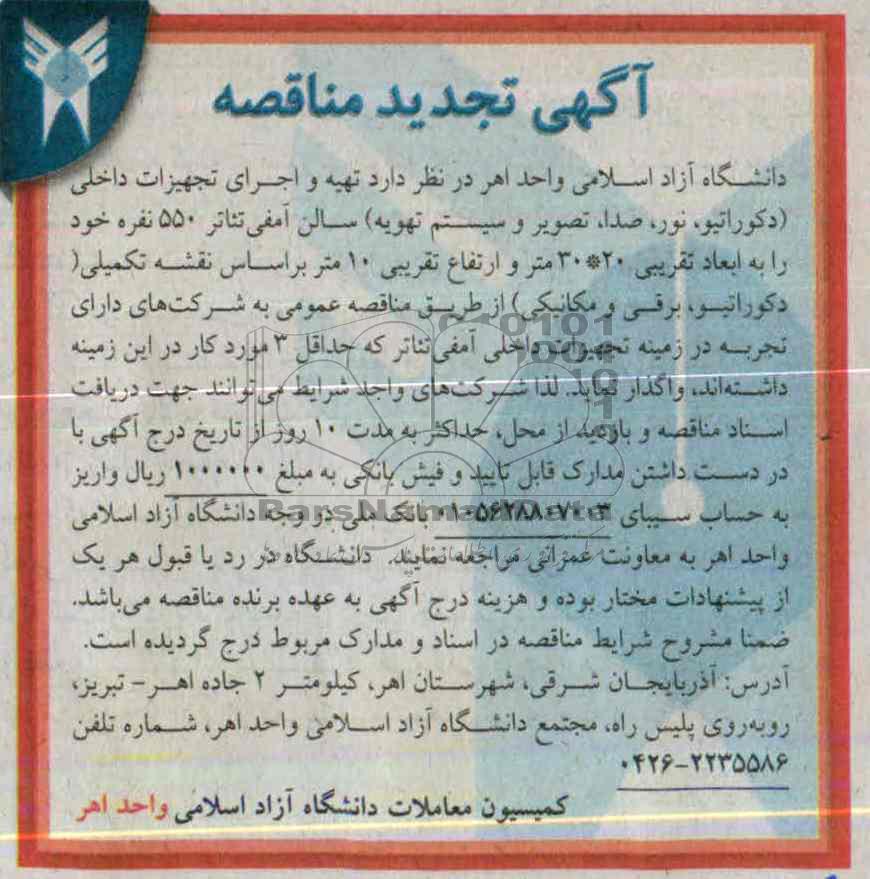 آگهی تجدید مناقصه
دانشگاه آزاد اسلامی واحد اهر در نظر دارد تهیه و اجرای تجهیزات داخلی
(دکوراتیو، نور، صدا، تصویر و سیستم تهویه) سالن آمفی‌تئاتر ۵۵۰ نفره خود
را به ابعاد تقریبی ۲۰*۳۰ متر و ارتفاع تقریبی ۱۰ متر براساس نقشه تکمیلی(
دکوراتیو، برقی و مکانیکی) از طریق مناقصه عمومی به شرکت‌های دارای
تجربه در زمینه تجهیزات داخلی آمفی‌تئاتر که حداقل ۳ مورد کار در این زمینه
داشته‌اند، واگذار نماید. لذا شرکت‌های واجد شرایط می‌توانند جهت دریافت
اسناد مناقصه و بازدید از محل، حداکثر به مدت ۱۰ روز از تاریخ درج آگهی با
در دست داشتن مدارک قابل تایید و فیش بانکی به مبلغ ۱۰۰۰۰۰۰ ریال واریز
به حساب سیبای بانک ملی در وجه دانشگاه آزاد اسلامی
واحد اهر به معاونت عمرانی مراجعه نمایند. دانشگاه در رد یا قبول هر یک
از پیشنهادات مختار بوده و هزینه درج آگهی به عهده برنده مناقصه می‌باشد.
ضمنا مشروح شرایط مناقصه در اسناد و مدارک مربوط درج گردیده است.
آدرس: آذربایجان شرقی، شهرستان اهر، کیلومتر ۲ جاده اهر- تبریز،
روبه‌روی پلیس راه، مجتمع دانشگاه آزاد اسلامی واحد اهر، شماره تلفن
۰۴۲۶-۲۲۳۵۵۸۶
کمیسیون معاملات دانشگاه آزاد اسلامی واحد اهر